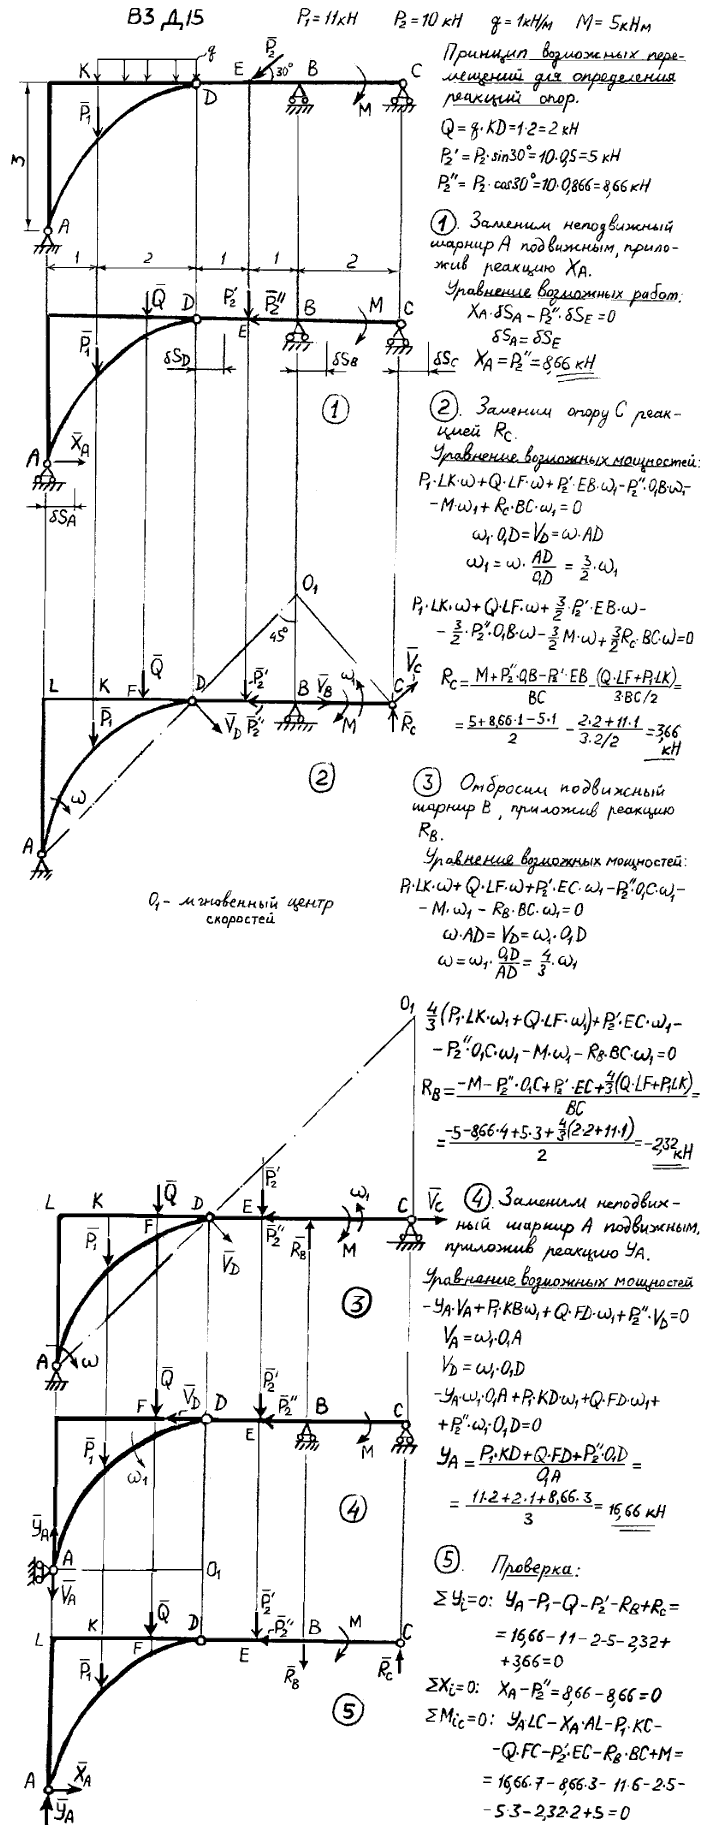 В3 Д15 P₁=11кН P₂=10 кН q=1кН/м M=5кНм
Принцип возможных пере-
мещений для определения
реакций опор.
Q=q·KD=1·2=2 кН
P₂'=P₂·sin30°=10·0,5=5 кН
P₂''=P₂·cos30°=10·0,866=8,66 кН
K q D E P̄₂ 30° B C M P̄₁ 3 A
1 2 1 1 2
① Заменим неподвижный
шарнир А подвижным, прило-
жив реакцию X_A.
Уравнение возможных работ:
X_A·δS_A–P₂''·δS_E=0
δS_A=δS_E
X_A=P₂''=8,66 кН
Q̄ D P̄₂' P̄₂'' E B M C P̄₁
δS_D δS_B δS_C
①
A X̄_A
δS_A
② Заменим опору С реак-
цией R_C.
Уравнение возможных мощностей:
P₁·LK·ω+Q·LF·ω+P₂'·EB·ω₁–P₂''·O₁B·ω₁–
–M·ω₁+R_C·BC·ω₁=0
ω₁·O₁D=V_D=ω·AD
ω₁=ω·AD/O₁D=3/2·ω₁
P₁·LK·ω+Q·LF·ω+3/2·P₂'·EB·ω–
–3/2·P₂''·O₁B·ω–3/2M·ω+3/2R_C·BC·ω=0
R_C=(M+P₂''·O₁B–P₂'·EB)/BC–(Q·LF+P₁·LK)/(3·BC/2)=
=(5+8,66·1–5·1)/2–(2·2+11·1)/(3·2/2)=3,66 кН
O₁
45°
L K F Q̄ D P̄₂' B V̄_B ω₁ C V̄_C
P̄₁ V̄_D P̄₂'' M R̄_C
ω
②
A
O₁ – мгновенный центр
скоростей
③ Отбросим подвижный
шарнир В, приложив реакцию
R_B.
Уравнение возможных мощностей:
P₁·LK·ω+Q·LF·ω+P₂'·EC·ω₁–P₂''·O₁C·ω₁–
–M·ω₁–R_B·BC·ω₁=0
ω·AD=V_D=ω₁·O₁D
ω=ω₁·O₁D/AD=4/3·ω₁
O₁
4/3(P₁·LK·ω₁+Q·LF·ω₁)+P₂'·EC·ω₁–
–P₂''·O₁C·ω₁–M·ω₁–R_B·BC·ω₁=0
R_B=(–M–P₂''·O₁C+P₂'·EC+4/3(Q·LF+P₁·LK))/BC=
=(–5–8,66·4+5·3+4/3(2·2+11·1))/2=–2,32 кН
P̄₂'
L K Q̄ D E ω₁ C V̄_C
F P̄₁ V̄_D P̄₂'' R̄_B M
③
A ω
④ Заменим неподвиж-
ный шарнир А подвижным,
приложив реакцию Y_A.
Уравнение возможных мощностей
–Y_A·V_A+P₁·KBω₁+Q·FD·ω₁+P₂''·V_D=0
V_A=ω₁·O₁A
V_D=ω₁·O₁D
–Y_A·ω₁·O₁A+P₁·KD·ω₁+Q·FD·ω₁+
+P₂''·ω₁·O₁D=0
Y_A=(P₁·KD+Q·FD+P₂''·O₁D)/O₁A=
=(11·2+2·1+8,66·3)/3=16,66 кН
Q̄ V̄_D D P̄₂' P̄₂'' B C
F E M
P̄₁ ω₁
④
Ȳ_A
A O₁
V̄_A
⑤. Проверка:
ΣYᵢ=0: Y_A–P₁–Q–P₂'–R_B+R_C=
=16,66–11–2–5–2,32+
+3,66=0
ΣXᵢ=0: X_A–P₂''=8,66–8,66=0
ΣMᵢc=0: Y_A·LC–X_A·AL–P₁·KC–
–Q·FC–P₂'·EC–R_B·BC+M=
=16,66·7–8,66·3–11·6–2·5–
–5·3–2,32·2+5=0
L K Q̄ D P̄₂' P̄₂'' B M C
F E
P̄₁ R̄_B R̄_C
⑤
A X̄_A
Ȳ_A